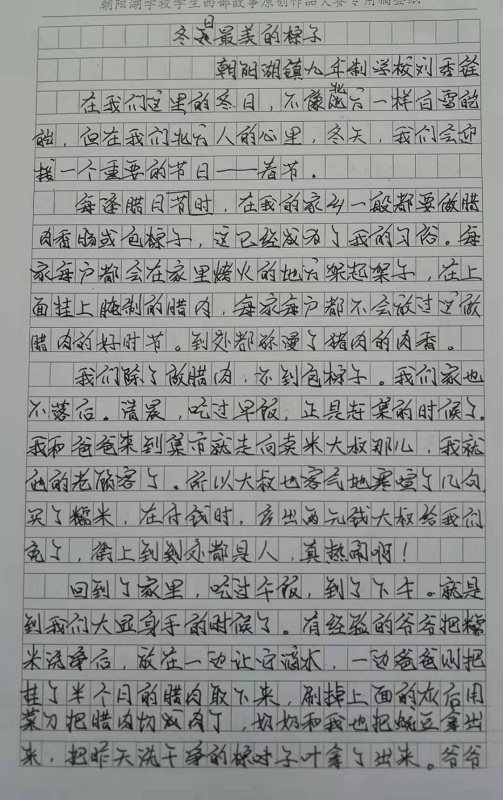 朝阳湖学校学生西部故事原创作品大赛专用稿签纸
冬日最美的粽子
朝阳湖镇九年制学校刘秀铨
在我们这里的冬日，不像北方一样白雪皑
皑，但在我们北方人的心里，冬天，我们会迎
接一个重要的节日——春节。
每逢腊日节时，在我的家乡一般都要做腊
肉香肠或包粽子，这已经成为了我的习俗。每
家每户都会在家里烤火的地方架起架子，在上
面挂上腌制的腊肉，每家每户都不会放过这做
腊肉的好时节。到处都弥漫了猪肉的肉香。
我们除了做腊肉，还到包粽子。我们家也
不落后。清晨，吃过早饭，正是赶集的时候了。
我和爸爸来到集市就走向卖米大叔那儿，我就
他的老顾客了。所以大叔也客气地寒暄了几句，
买了糯米，在付钱时，多出两元钱大叔给我们
免了，街上到到处都是人，真热闹啊！
回到了家里，吃过午饭，到了下午。就是
到我们大显身手的时候了。有经验的爷爷把糯
米洗净后，放在一边让它滴水，一边爸爸则把
挂了半个月的腊肉取下来，刷掉上面的灰后用
菜刀把腊肉切成肉丁，奶奶和我也把豌豆拿出
来，把昨天洗干净的粽子叶拿了出来。爷爷